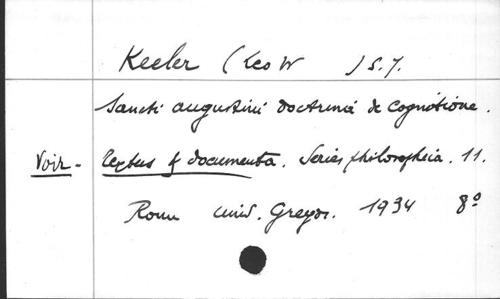 Keeler (Leo W ) S.J.
Sancti augustini doctrina de cognitione.
Voir - textus & documenta. Series philosophica. 11.
Romae univ. Gregor. 1934 8°